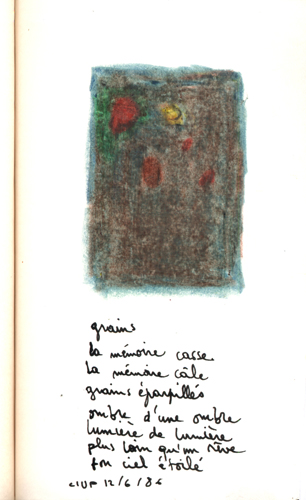 grains
la mémoire casse
la mémoire câle
grains éparpillés
ombre d'une ombre
lumière de lumière
plus loin qu'un rêve
ton ciel étoilé
12/6/86